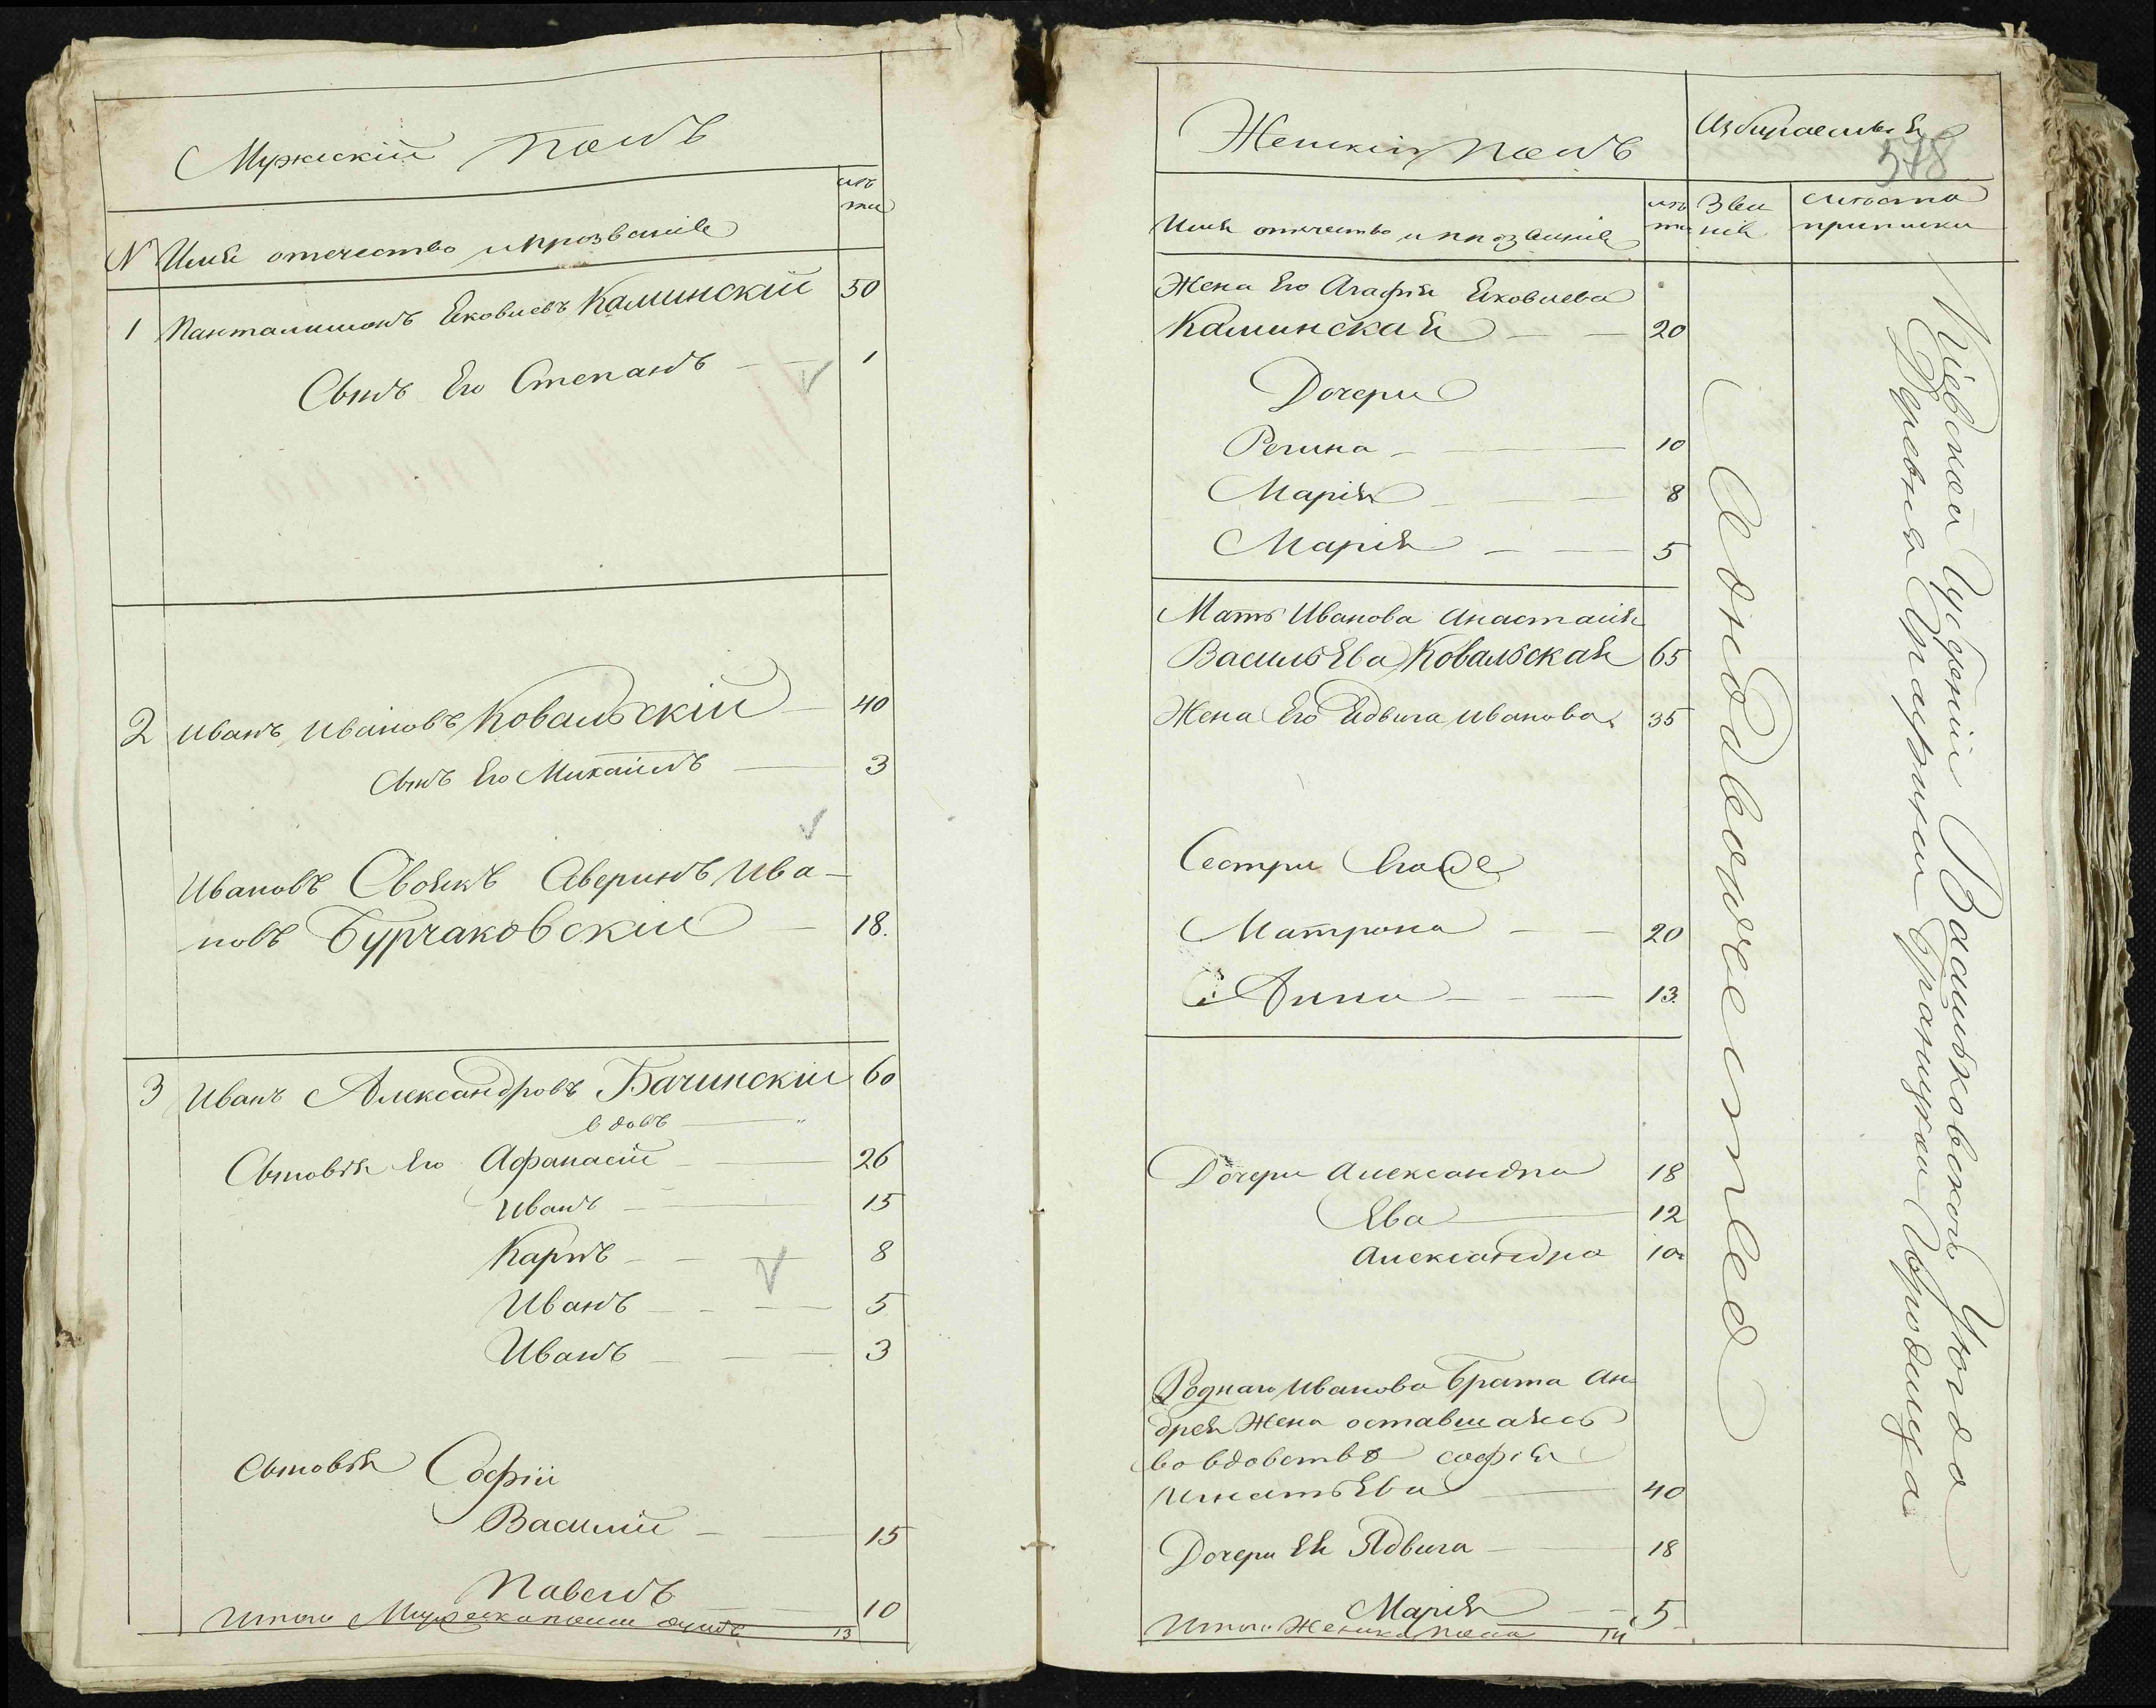 Мужескій полъ
лѣ
ты
N Имя отечество и прозваніе
1 Панталимонъ Яковлевъ Каминскій 50
Сынъ Его Степанъ 1
2 Иванъ Ивановъ Ковальскій 40
Сынъ Его Михаилъ 3
Ивановъ Своякъ Аверинъ Ива-
новъ Бурчаковскій 18.
3 Иванъ Александровъ Бачинскій 60
вдовъ
Сыновья Его Афанасій 26
Иванъ 15
Карпъ 8
Иванъ 5
Иванъ 3
Сыновья Софіи
Василій 15
Павелъ 10
Итого Мужеска пола душъ 13
Женскій полъ
578
Имя отечество и прозваніе
лѣ
ты
Зва
ніе
мѣста
приписки
Жена Его Агафія Яковлева
Каминская 20
Дочери
Регина 10
Марія 8
Марія 5
Мать Иванова Анастасія
Васильева Ковальская 65
Жена Его Ядвига Иванова 35
Сестри Его же
Матрона 20
Анна 13.
Дочери Александра 18
Ева 12
Александра 10
Роднаго Иванова брата Ан-
дрея Жена оставшаясь
во вдовствѣ Софія
Игнатьева 40
Дочери Ея Ядвига 18
Марія 5
Итого Женска пола 14
Однодворчество
Кіевской Губерніи Васильковскаго Уѣзда
Деревня